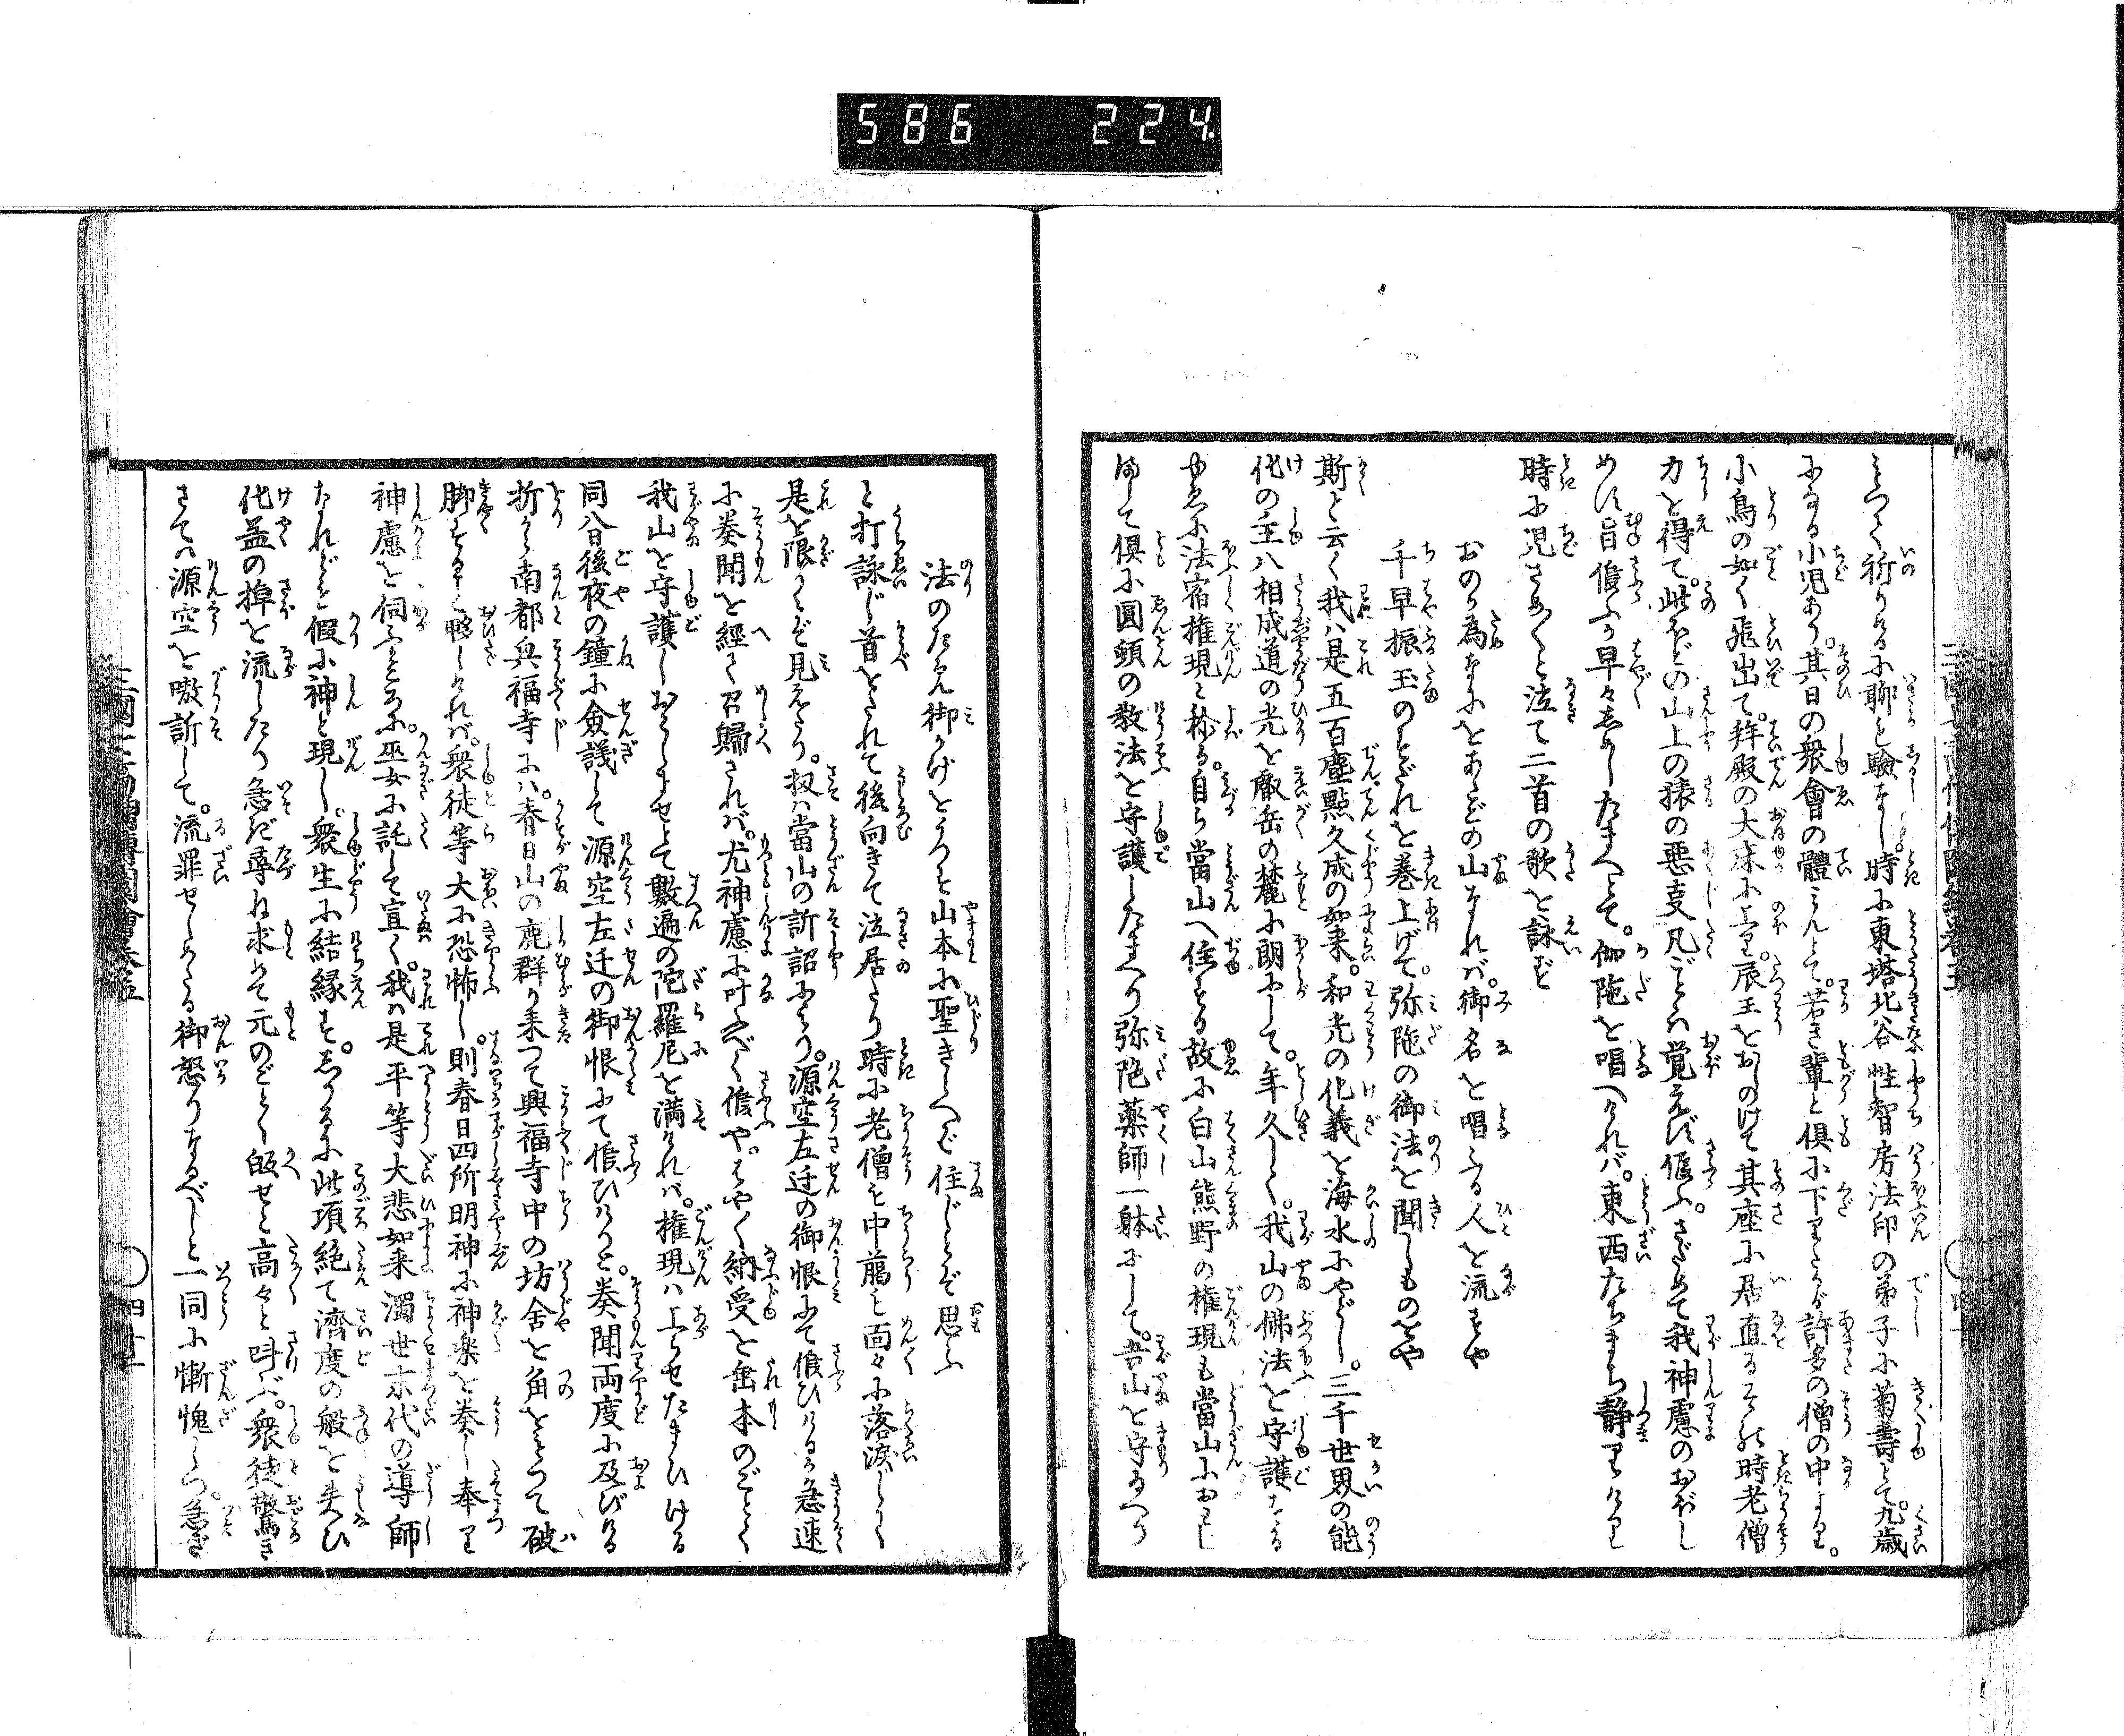 586 224
こゝろく祈りけるに聊も驗なし。時に東塔北谷性智房法印の弟子に菊壽とて。九歳
になる小児あり。其日の衆會の體みんとて。若き輩と倶に下りたるが許多の僧の中より。
小鳥の如く飛出て。拝殿の大床に上り。辰王をおしのけて其座に居直るその時老僧
力を得て。此ほどの山上の猿の悪支凡ごとゝは覚えず候ふ。さだめて我神慮のおぼし
めす旨候ふか早々しめしたまへとて。伽陀を唱へければ。東西たちまち静りけり
時に児さめ〴〵と泣て二首の歌を詠ず
おのが為なにをあだどの山なれば。御名を唱ふる人を流すや
千早振玉のすだれを巻上げて。弥陀の御法を聞しものをや
斯と云く我ハ是五百塵點久成の如来。和光の化義を海水にやどし。三千世界の能
化の主八相成道の光を叡岳の麓に朗にして。年久しく。我山の佛法を守護なる
ゆゑに法宿権現と称る。自ら當山へ住する故に白山熊野の権現も當山におわし
まして倶に圓頓の教法を守護したまへり弥陀薬師一躰にして。吾山を守るべう
三國七高僧傳圖會巻五
法のため御かげをうつす山本に聖きらへば住じとぞ思ふ
と打詠じ首をたれて後向きて泣居たり時に老僧も中﨟も面々に落涙しく
是を限りとぞ見えたり。扨ハ當山の訴詔により。源空左迁の御恨にて候ひけるか急速
に奏聞を經て召歸されば。尤神慮に叶べく候や。はやく納受を垂本のごとく
我山を守護しおはしませとて數遍の陀羅尼を満ければ。権現ハ上らせたまひける
同八日後夜の鐘に僉議して源空左迁の御恨にて候ひけりと。奏聞両度に及びける
折から南都興福寺にハ。春日山の鹿群り来つて興福寺中の坊舍を角をもつて破
脚するを夥しければ。衆徒等大に恐怖し。則春日四所明神に神楽を奏し奉り
神慮を伺ふところに。巫女に託して宣く。我ハ是平等大悲如来濁世末代の導師
たれども假に神と現し。衆生に結縁す。しかるに此頃絶て濟度の般を失ひ
化益の棹を流したり急ぎ尋ね求めて元のごとく皈せと高々と呼ぶ。衆徒驚き
さてハ源空を嗷訴して。流罪せしめたる御怒りなるべしと一同に慚愧しつ。急ぎ
三國七高僧傳圖會巻五
四十一